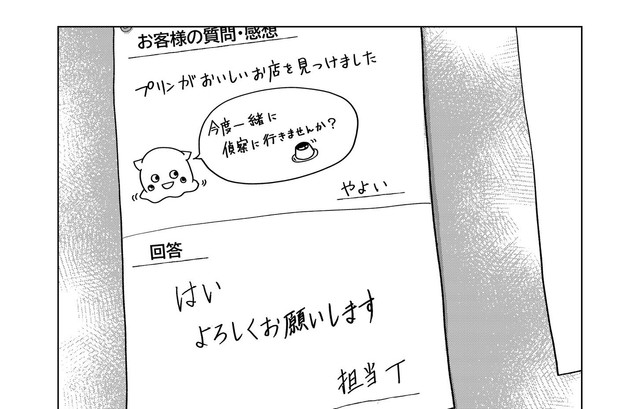 お客様の質問・感想
プリンがおいしいお店を見つけました
今度一緒に
偵察に行きませんか?
やよい
回答
はい
よろしくお願いします
担当 T